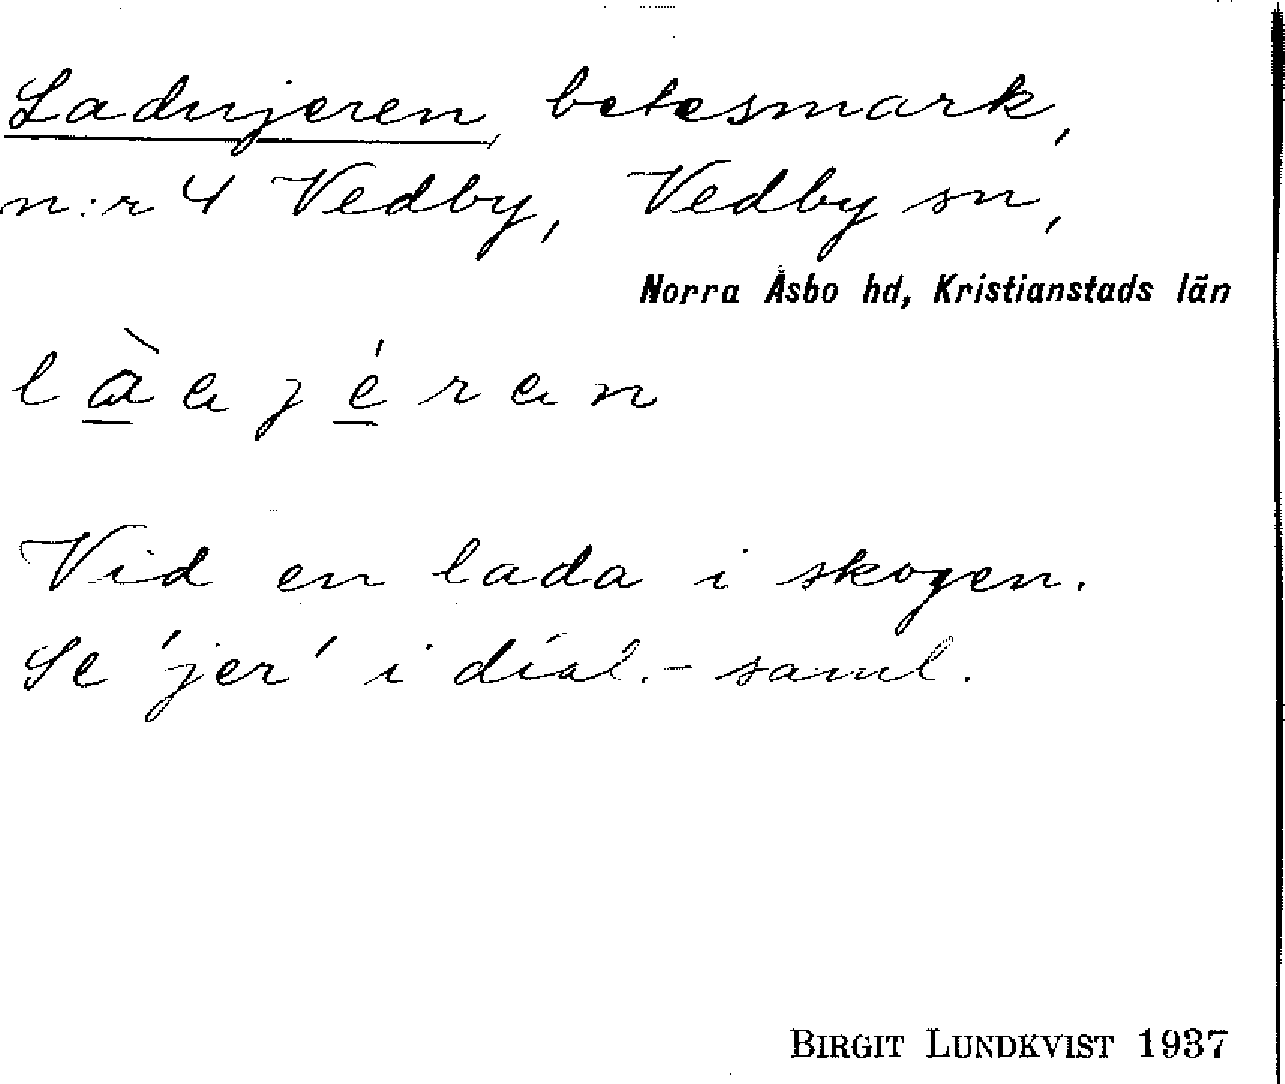 Ladujeren, betesmark,
n:r 4 Vedby, Vedby sn,
Norra Åsbo hd, Kristianstads län
Vid en lada i skogen.
Se 'jer' i dial.-saml.
BIRGIT LUNDKVIST 1937